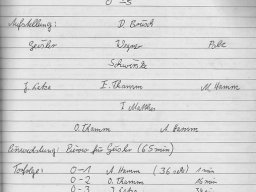 0 - 5
Aufstellung: D. Brusch
Geisler Wagner Polte
Schwinke
J. Lieke E. Thamm M. Hamm
T. Matthes
O. Thamm A. Hamm
Einwechslung: für Geisler (65 min)
Torfolge: 0-1 A. Hamm (36 sek) 1 min
0-2 O. Thamm 16 min
0-3 J. Lieke